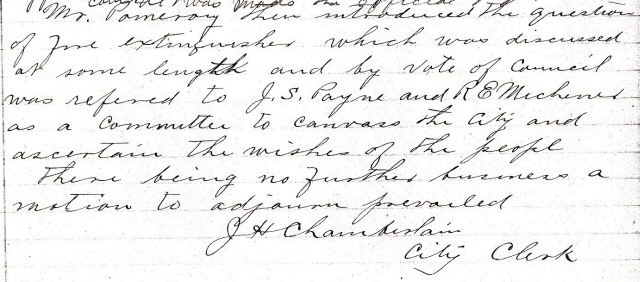 council was made the official
Mr. Pomeroy then introduced the question
of fire extinguisher which was discussed
at some length and by vote of Council
was refered to J. S. Payne and R E Michener
as a committee to canvass the City and
ascertain the wishes of the peopl
There being no further business a
motion to adjourn prevailed
J H Chamberlain
City Clerk